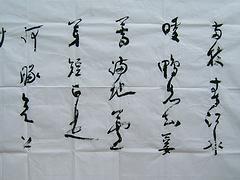 兩枝春江水
暖鴨先知蔞
蒿滿地蘆
芽短正是
河豚欲上